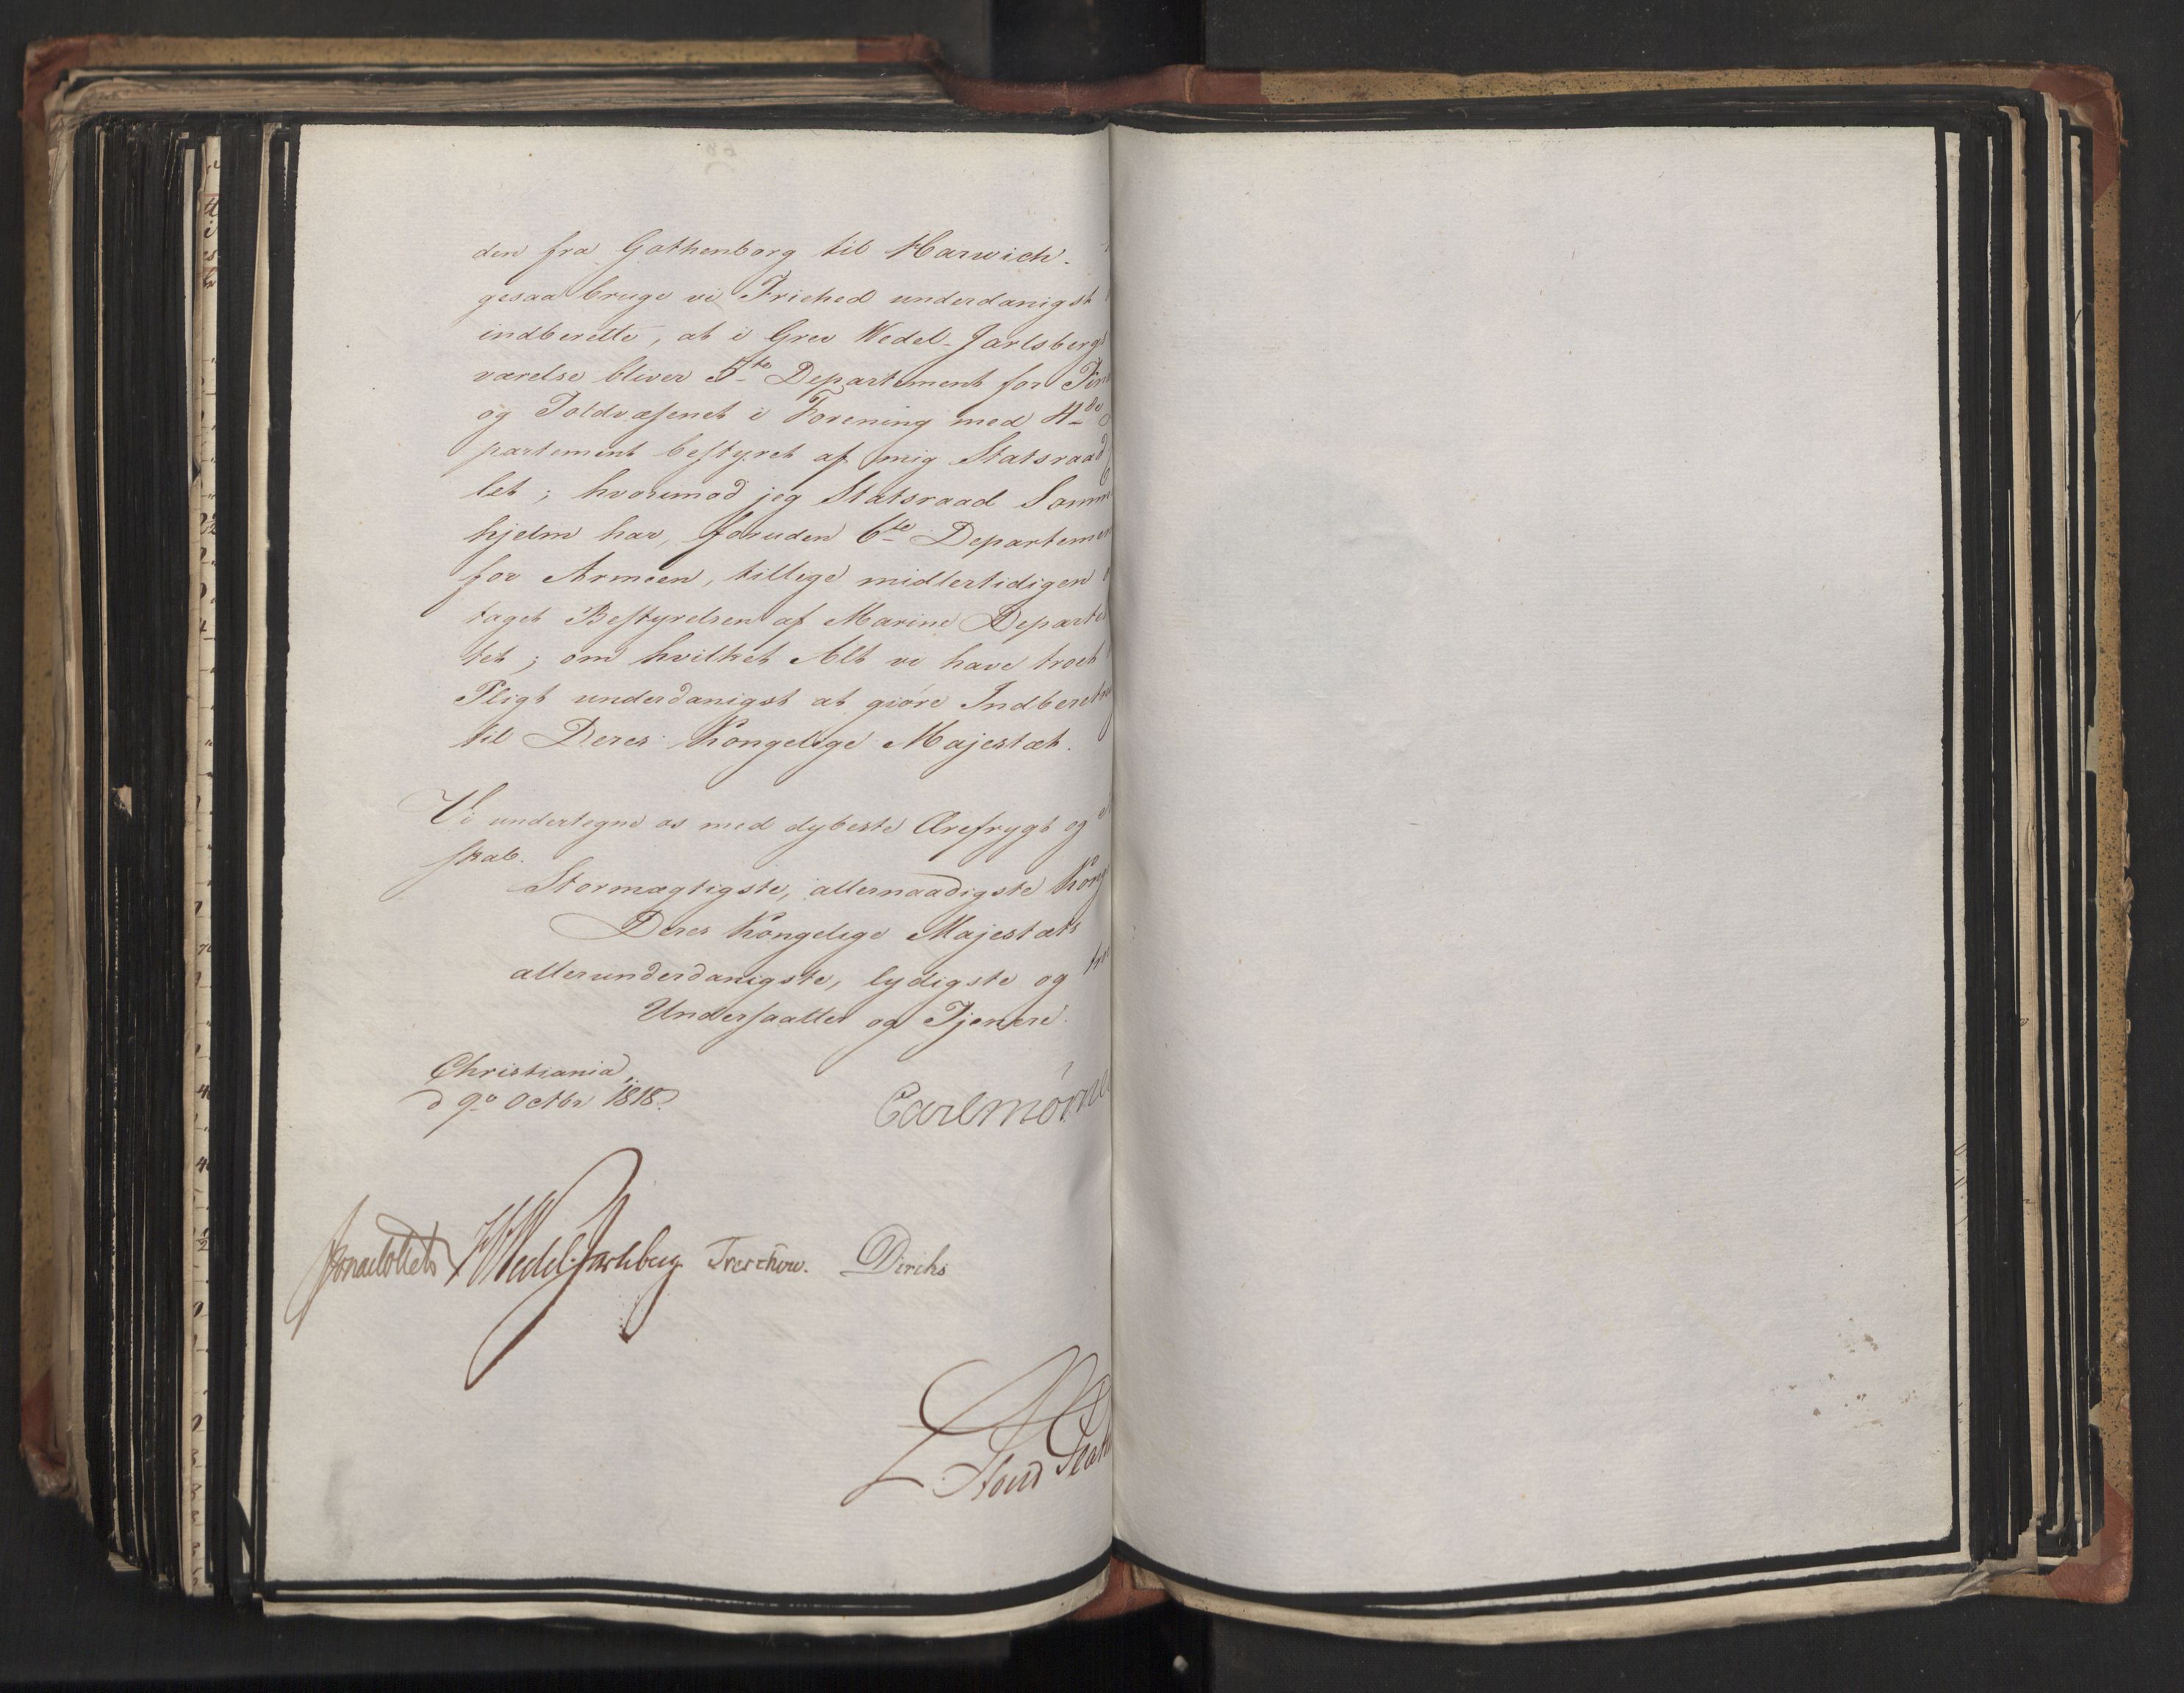 den fra Gothenborg til Harwich.
gesaa bruge vi Friehed underdanigst
indberette, at i Grev Wedel-Jarlsbergs
værelse bliver 5te Departement for Fin
og Toldvæsenet i Forening med 4de
partement bestyret af mig Statsraad
let; hvorimod jeg Statsraad Somm
hjelm har, foruden 6te Departemen
for Armeen, tillige midlertidigen
taget Bestyrelsen af Marine Departe
tet; om hvilket Alt vi have troet
Pligt underdanigst at giøre Indberetn
til Deres Kongelige Majestæt.
Vi undertegne os med dybeste Ærefrygt og
skab.
Stormægtigste, allernaadigste Kong
Deres Kongelige Majestæts
allerunderdanigste, lydigste og tro
Undersaatter og Tjenere.
Christiania
d 9de Octbr 1818.
Carl Mörne
Jonas Collett HWedel Jarlsberg Treschow. Diriks